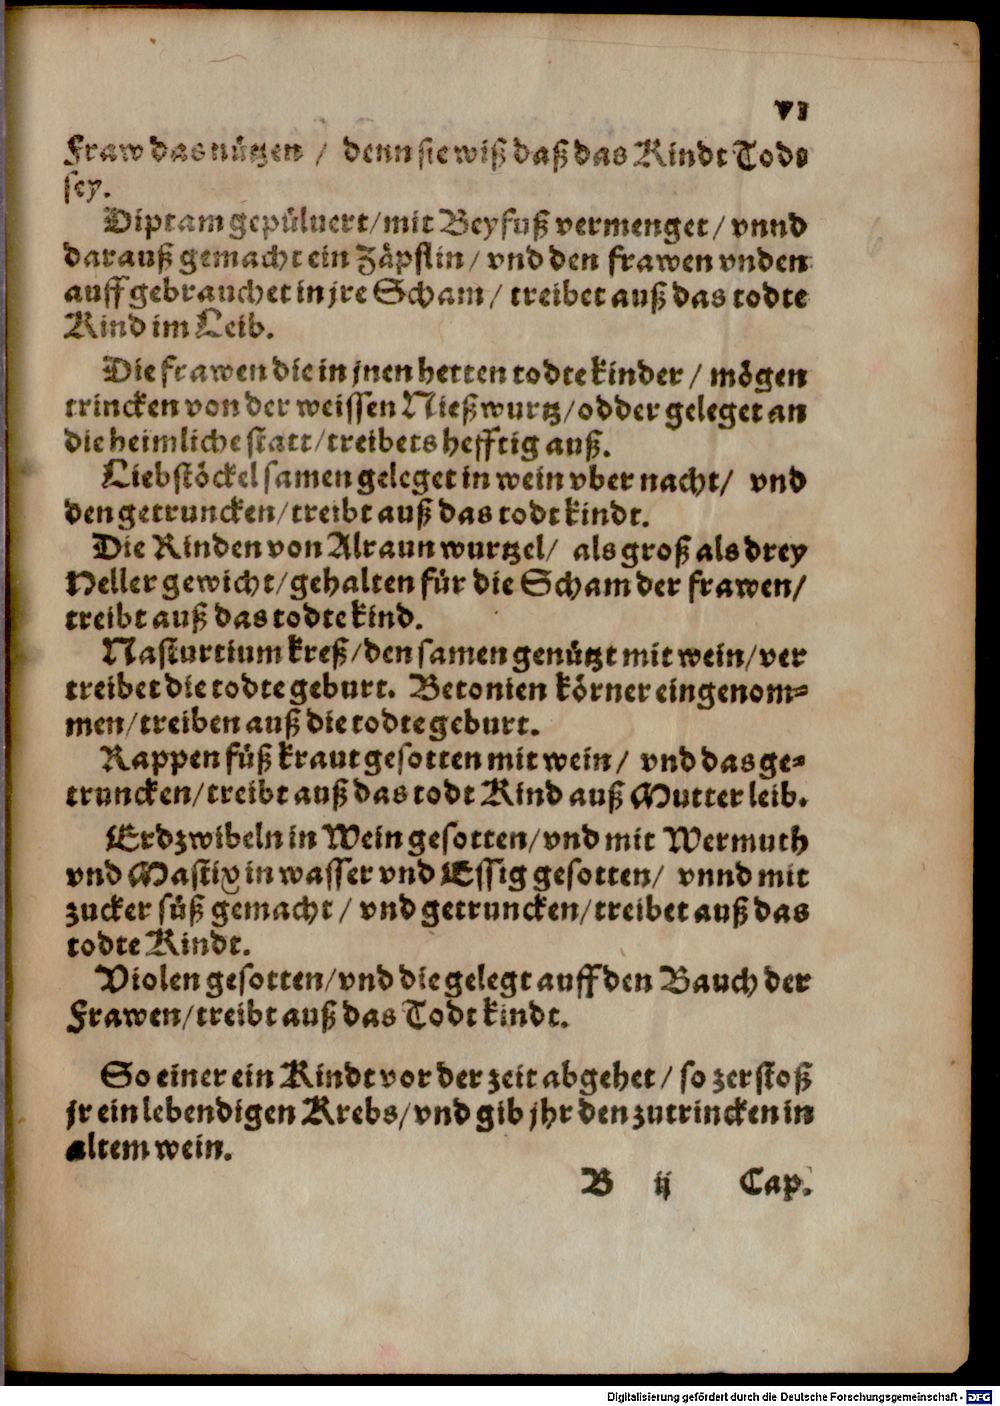 VI
Fraw das nützen / denn sie wiß daß das Kindt Tods
sey.
Diptam gepüluert/mit Beyfuß vermenget/ vnnd
darauß gemacht ein Zäpflin/ vnd den frawen vnden
auff gebrauchet in jre Scham/ treibet auß das todte
Kind im Leib.
Die frawen die in jnen hetten todte kinder/ mögen
trincken von der weissen Nießwurtz/odder geleget an
die heimliche statt/treibets hefftig auß.
Liebstöckel samen geleget in wein vber nacht/ vnd
den getruncken/treibt auß das todt kindt.
Die Rinden von Alraun wurtzel/ als groß als drey
Heller gewicht/gehalten für die Scham der frawen/
treibt auß das todte kind.
Nasturtium kreß/den samen genützt mit wein/ver
treibet die todte geburt. Betonien körner eingenom=
men/treiben auß die todte geburt.
Rappen füß kraut gesotten mit wein/ vnd das ge=
truncken/treibt auß das todt Kind auß Mutter leib.
Erdzwibeln in Wein gesotten/vnd mit Wermuth
vnd Mastix in wasser vnd Essig gesotten/ vnnd mit
zucker süß gemacht/ vnd getruncken/treibet auß das
todte Kindt.
Violen gesotten/vnd die gelegt auff den Bauch der
Frawen/treibt auß das Todt kindt.
So einer ein Kindt vor der zeit abgehet/ so zerstoß
jr ein lebendigen Krebs/vnd gib jhr den zutrincken in
altem wein.
B ij Cap.
6
Digitalisierung gefördert durch die Deutsche Forschungsgemeinschaft - DFG